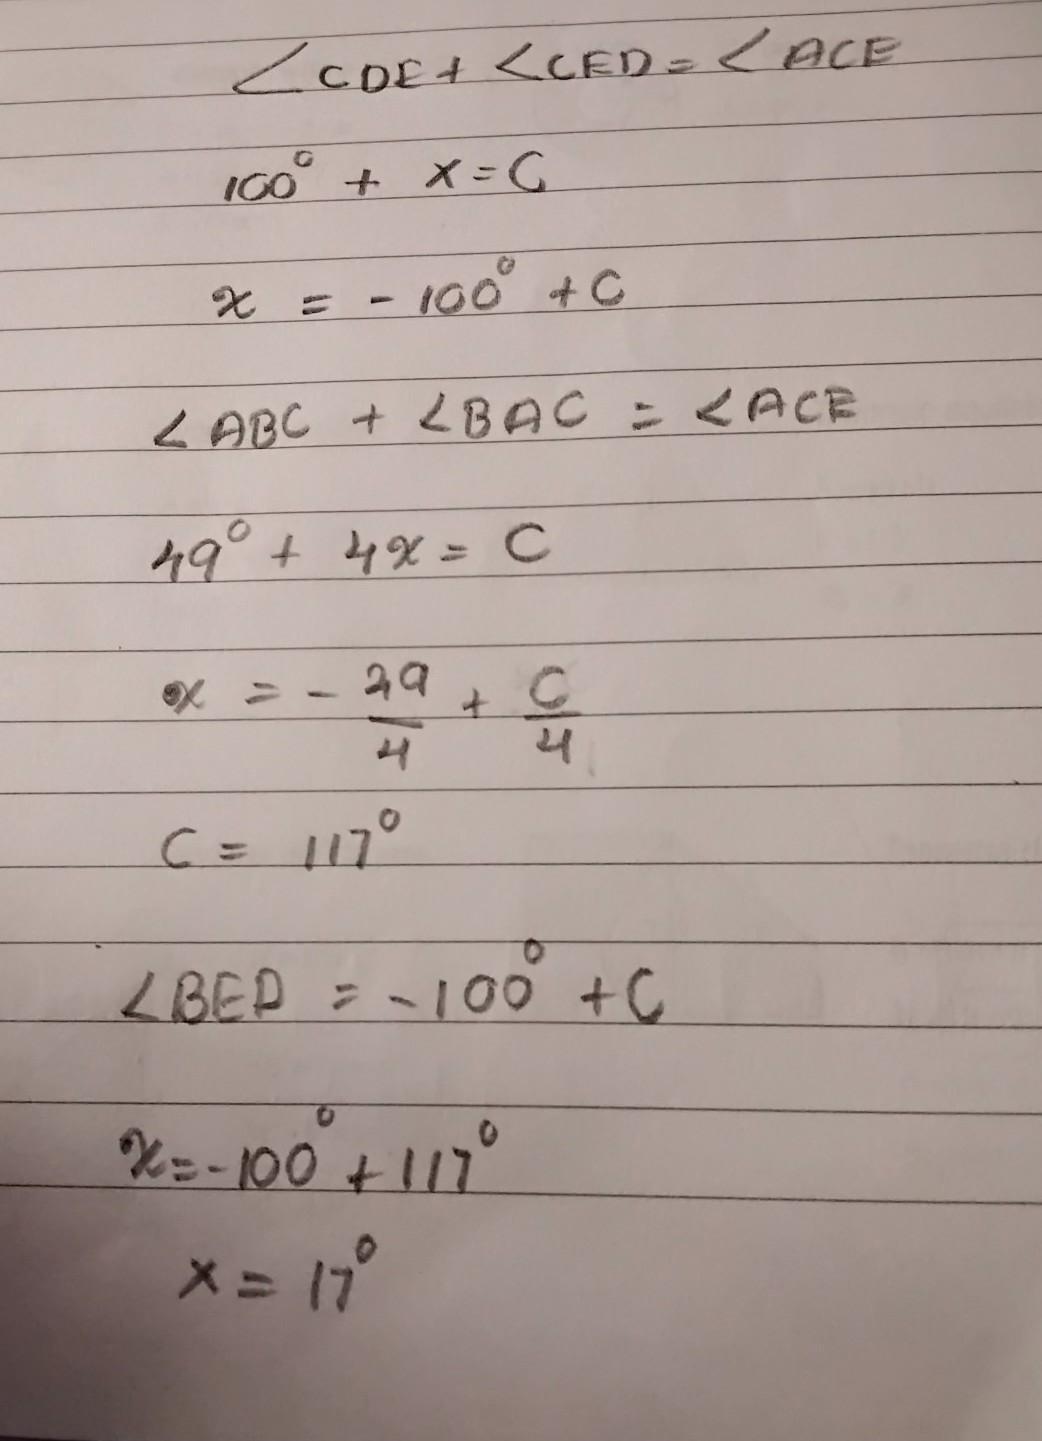 ∠CDE + ∠CED = ∠ACE
100° + x = C
x = - 100° + C
∠ABC + ∠BAC = ∠ACE
49° + 4x = C
x = - 49/4 + C/4
C = 117°
∠BED = -100° + C
x = -100° + 117°
x = 17°